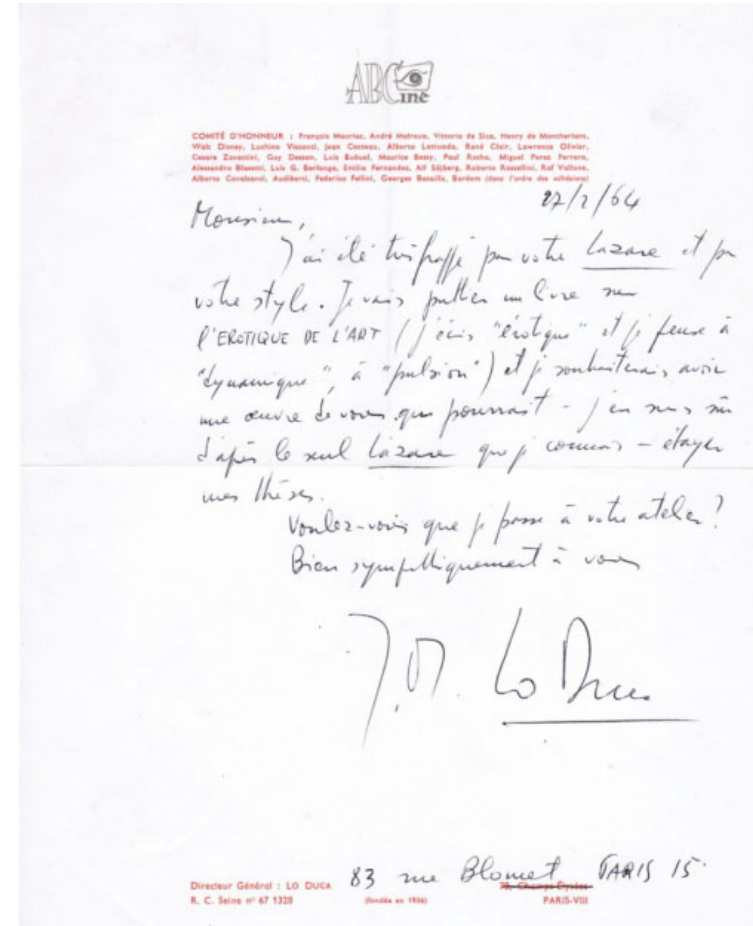 ABCiné
COMITÉ D'HONNEUR : François Mauriac, André Malraux, Vittorio de Sica, Henry de Montherlant,
Walt Disney, Luchino Visconti, Jean Cocteau, Alberto Lattuada, René Clair, Lawrence Olivier,
Cesare Zavattini, Guy Dessen, Luis Buñuel, Maurice Bessy, Paul Rotha, Miguel Perez Ferrero,
Alessandro Blasetti, Luis G. Berlanga, Emilio Fernandez, Alf Sjöberg, Roberto Rossellini, Raf Vallone,
Alberto Cavalcanti, Audiberti, Federico Fellini, Georges Bataille, Bardem (dans l'ordre des adhésions)
27/2/64
Monsieur,
J'ai été très frappé par votre Lazare et par
votre style. Je vais publier un livre sur
l'EROTIQUE DE L'ART (j'écris "érotique" et je pense à
"dynamique", à "pulsion") et je souhaiterais avoir
une œuvre de vous qui pourrait - j'en suis sûr
d'après le seul Lazare que je connais - étayer
mes thèses.
Voulez-vous que je passe à votre atelier ?
Bien sympathiquement à vous
J.M. Lo Duca
83 rue Blomet PARIS 15
Directeur Général : LO DUCA
Champs Élysées
R. C. Seine nº 67 1328 (fondée en 1936) PARIS-VIII